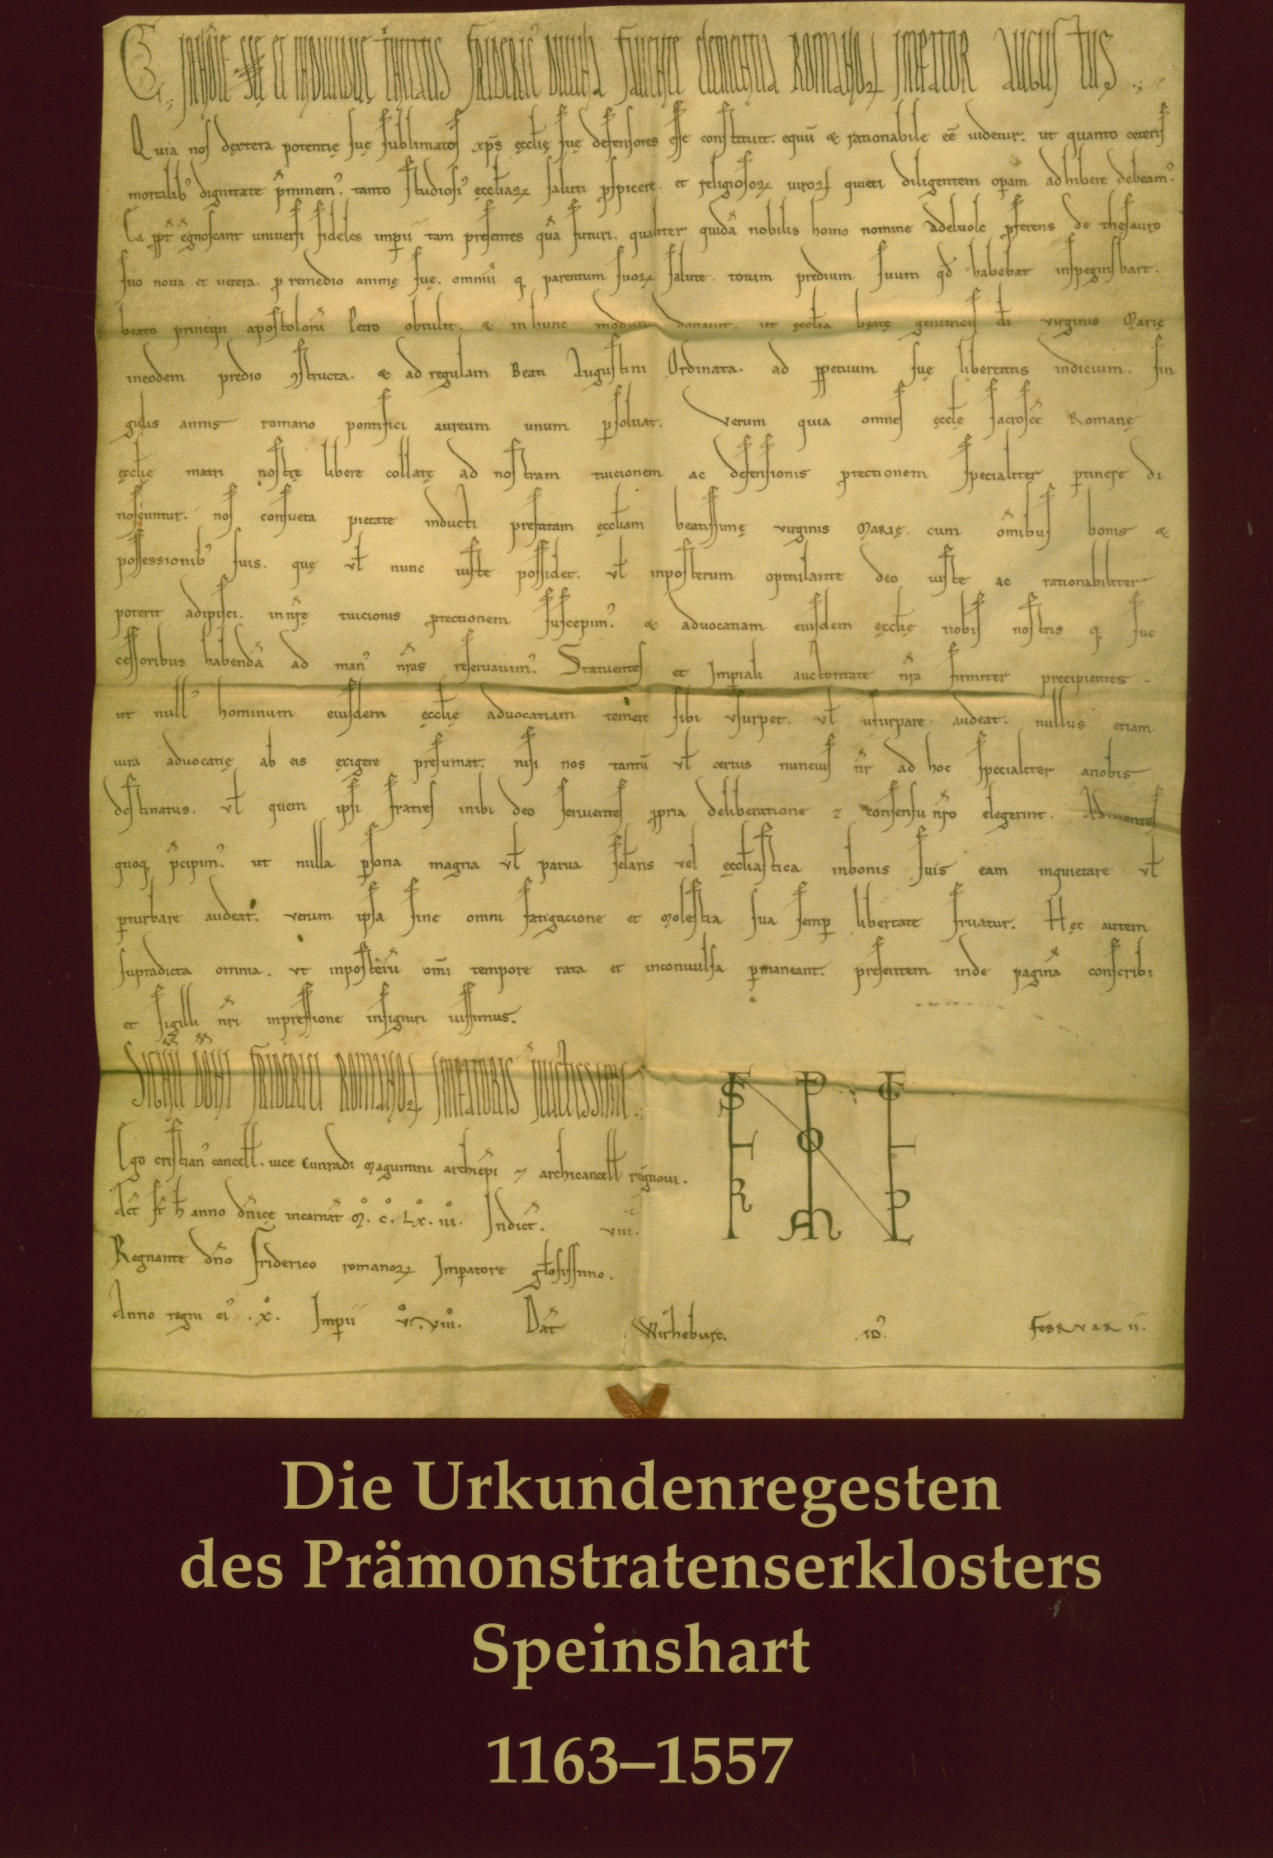 Quia nos dextera potentie sue sublimatos xps ecclie sue defensores esse constituit. equu & rationabile ee videtur. ut quanto ceteris
mortalib dignitate preminem. tanto studiosi eccliarum saluti pspicere et religiosorum virorum quieti diligentem opam adhibere debeam.
cognoscant universi fideles imperii tam presentes qua futuri. qualiter quida nobilis homo nomine Adelvolc pferens de thesauro
suo nova et vetera. p remedio anime sue. omniu q parentum suorum salute. totum predium suum qd habebat inspeginsbart.
beato principi apostoloru Petro obtulit. & in hunc modum donavit. ut ecclia beate genitricis di virginis Marie
ineodem predio constructa. & ad regulam Beati Augustini Ordinata. ad ppetuum sue libertatis indicium. sin
gulis annis romano pontifici aureum unum psolvat. Verum quia omnes eccle sacrosce Romane
ecclie matri nostre libere collate ad nostram tuicionem ac defensionis ptectionem specialiter ptinere di
noscuntur. nos consueta pietate inducti prefatam eccliam beatissime virginis Marie. cum omibus bonis &
possessionib suis. que vl nunc iuste possidet. vl inposterum opitulante deo iuste ac rationabiliter
poterit adipisci. in nre tuicionis ptectionem suscepim. & advocatiam eiusdem ecclie nobis nostris q suc
cessoribus habenda ad man nras reservavim. Statuentes et Imperiali auctoritate nra firmiter precipientes
ut null hominum eiusdem ecclie advocatiam temere sibi usurpet. vl usurpare audeat. nullus etiam
iura advocatie ab eis exigere presumat. nisi nos tantu vl certus nuncius nr ad hoc specialiter anobis
destinatus. vl quem ipsi fratres inibi deo servientes ppria deliberatione & consensu nro elegerint.
quoq pcipim. ut nulla psona magna vl parva sclaris vel eccliastica inbonis suis eam inquietare vl
pturbare audeat. verum ipsa sine omni fatigacione et molestia sua semp libertate fruatur. Hec autem
supradicta omnia. ut inposteru omi tempore rata et inconvulsa pmaneant. presentem inde pagina conscribi
et sigilli nri inpressione insigniri iussimus.
Ego cristian cancell. vice Cunradi Maguntini archiepi & archicancell regnovi.
Act st h anno dnice incarnat M. C. LX. iii. Indict. viii.
Regnante dno Friderico romanorum Imperatore glosissimo.
Anno regni ei .x. Imperii v. viii. Dat Wirzeburc. ID Febrvar ii.
Die Urkundenregesten
des Prämonstratenserklosters
Speinshart
1163–1557